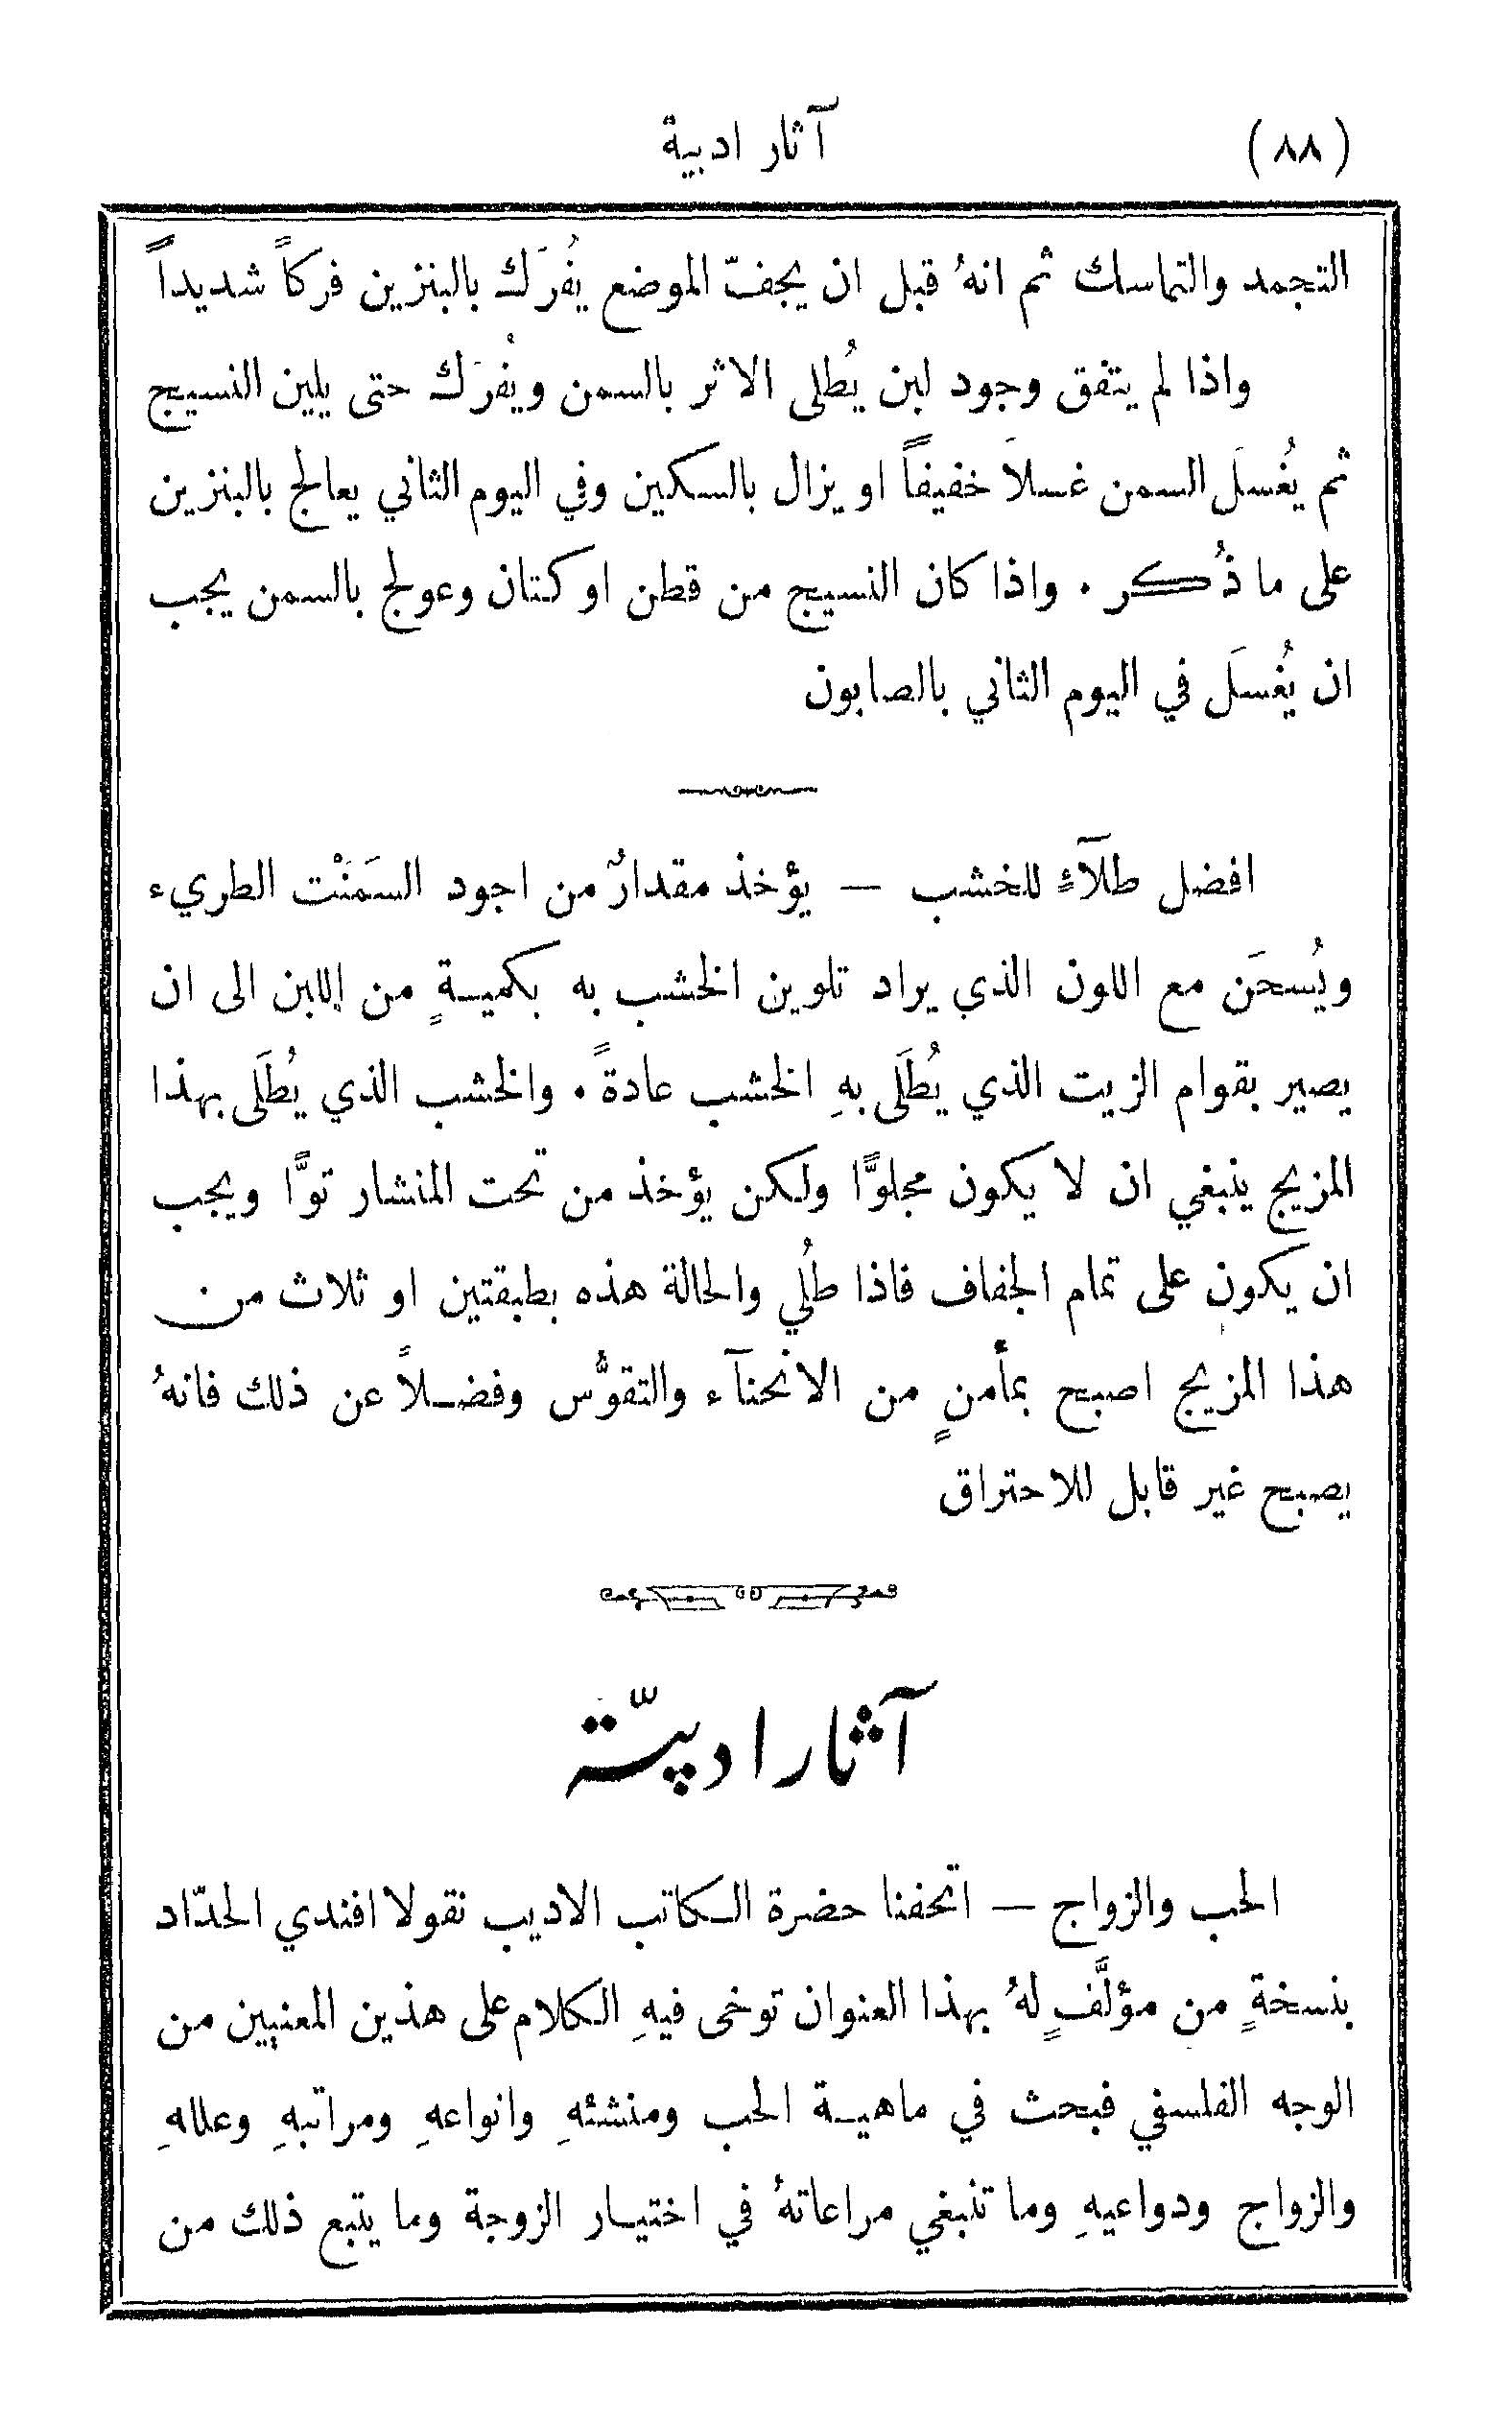 (٨٨)
آثار ادبية
التجمد والتماسك ثم انهُ قبل ان يجفّ الموضع يُفرَك بالبنزين فركاً شديداً
واذا لم يتفق وجود لبن يُطلى الاثر بالسمن ويُفرَك حتى يلين النسيج
ثم يُغسَل السمن غسلاً خفيفاً او يزال بالسكين وفي اليوم الثاني يعالج بالبنزين
على ما ذُكر . واذا كان النسيج من قطن او كتان وعولج بالسمن يجب
ان يُغسَل في اليوم الثاني بالصابون
افضل طلآءٍ للخشب — يؤخذ مقدارٌ من اجود السَمَنْت الطريء
ويُسحَن مع اللون الذي يراد تلوين الخشب به بكميةٍ من اللبن الى ان
يصير بقوام الزيت الذي يُطلَى بهِ الخشب عادةً . والخشب الذي يُطلَى بهذا
المزيج ينبغي ان لا يكون مجلوًّا ولكن يؤخذ من تحت المنشار توًّا ويجب
ان يكون على تمام الجفاف فاذا طُلي والحالة هذه بطبقتين او ثلاث من
هذا المزيج اصبح بمأمنٍ من الانحنآء والتقوُّس وفضلاً عن ذلك فانهُ
يصبح غير قابل للاحتراق
آثار ادبيّة
الحب والزواج — اتحفنا حضرة الكاتب الاديب نقولا افندي الحدّاد
بنسخةٍ من مؤلَّفٍ لهُ بهذا العنوان توخى فيهِ الكلام على هذين المعنيين من
الوجه الفلسفي فبحث في ماهية الحب ومنشئهِ وانواعهِ ومراتبهِ وعللهِ
والزواج ودواعيهِ وما تنبغي مراعاتهُ في اختيار الزوجة وما يتبع ذلك من